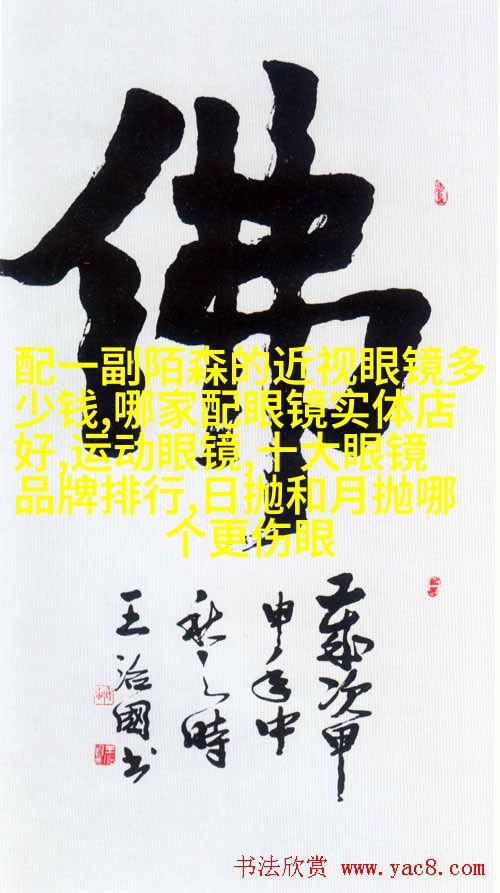 佛
配一副陌森的近视眼镜多
少钱,哪家配眼镜实体店
好,运动眼镜,十大眼镜
品牌排行,日抛和月抛哪
个更伤眼
岁次甲
申年中
秋之时
王治國书
书法欣赏 www.yac8.com